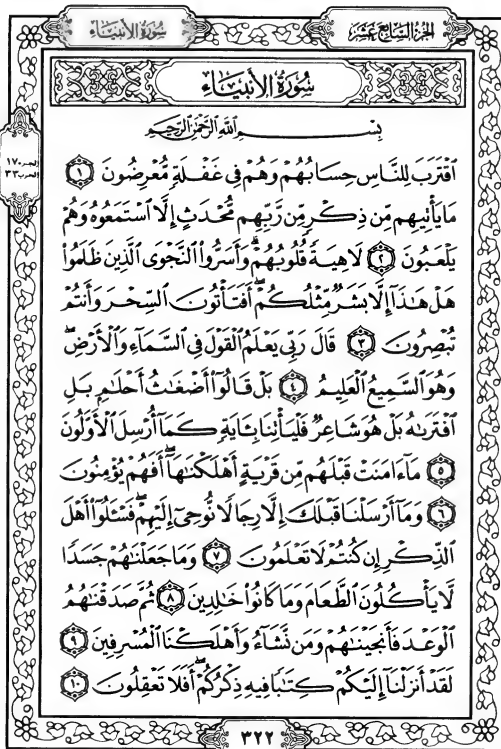 سُورَةُ الأَنبِيَاءِ
الجُزءُ السَّابِعُ عَشَرَ
سُورَةُ الأَنبِيَاءِ
الجزء ١٧
الحزب ٣٣
بِسْمِ اللَّهِ الرَّحْمَنِ الرَّحِيمِ
ٱقْتَرَبَ لِلنَّاسِ حِسَابُهُمْ وَهُمْ فِى غَفْلَةٍ مُّعْرِضُونَ ١
مَايَأْتِيهِم مِّن ذِكْرٍ مِّن رَّبِّهِم مُّحْدَثٍ إِلَّا ٱسْتَمَعُوهُ وَهُمْ
يَلْعَبُونَ ٢ لَاهِيَةً قُلُوبُهُمْ ۗ وَأَسَرُّوا۟ ٱلنَّجْوَى ٱلَّذِينَ ظَلَمُوا۟
هَلْ هَٰذَآ إِلَّا بَشَرٌ مِّثْلُكُمْ ۖ أَفَتَأْتُونَ ٱلسِّحْرَ وَأَنتُمْ
تُبْصِرُونَ ٣ قَالَ رَبِّى يَعْلَمُ ٱلْقَوْلَ فِى ٱلسَّمَآءِ وَٱلْأَرْضِ ۖ
وَهُوَ ٱلسَّمِيعُ ٱلْعَلِيمُ ٤ بَلْ قَالُوٓا۟ أَضْغَٰثُ أَحْلَٰمٍ بَلِ
ٱفْتَرَىٰهُ بَلْ هُوَ شَاعِرٌ فَلْيَأْتِنَا بِـَٔايَةٍ كَمَآ أُرْسِلَ ٱلْأَوَّلُونَ
٥ مَآ ءَامَنَتْ قَبْلَهُم مِّن قَرْيَةٍ أَهْلَكْنَٰهَآ ۖ أَفَهُمْ يُؤْمِنُونَ
٦ وَمَآ أَرْسَلْنَا قَبْلَكَ إِلَّا رِجَالًا نُّوحِىٓ إِلَيْهِمْ ۖ فَسْـَٔلُوٓا۟ أَهْلَ
ٱلذِّكْرِ إِن كُنتُمْ لَا تَعْلَمُونَ ٧ وَمَا جَعَلْنَٰهُمْ جَسَدًا
لَّا يَأْكُلُونَ ٱلطَّعَامَ وَمَا كَانُوا۟ خَٰلِدِينَ ٨ ثُمَّ صَدَقْنَٰهُمُ
ٱلْوَعْدَ فَأَنجَيْنَٰهُمْ وَمَن نَّشَآءُ وَأَهْلَكْنَا ٱلْمُسْرِفِينَ ٩
لَقَدْ أَنزَلْنَآ إِلَيْكُمْ كِتَٰبًا فِيهِ ذِكْرُكُمْ ۖ أَفَلَا تَعْقِلُونَ ١٠
٣٢٢